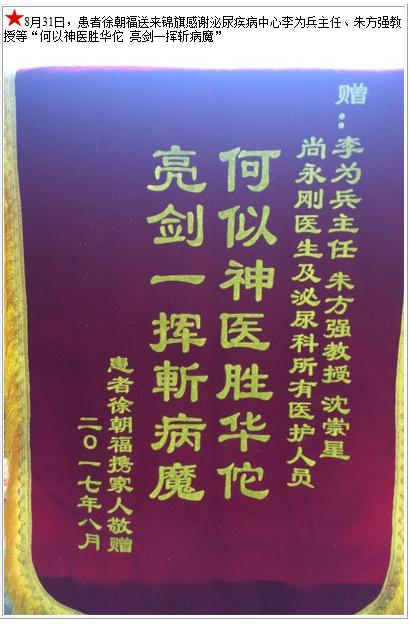 8月31日，患者徐朝福送来锦旗感谢泌尿疾病中心李为兵主任、朱方强教
授等“何以神医胜华佗 亮剑一挥斩病魔”
赠：李为兵主任 朱方强教授 沈崇星
尚永刚医生及泌尿科所有医护人员
何似神医胜华佗
亮剑一挥斬病魔
患者徐朝福携家人敬赠
二〇一七年八月